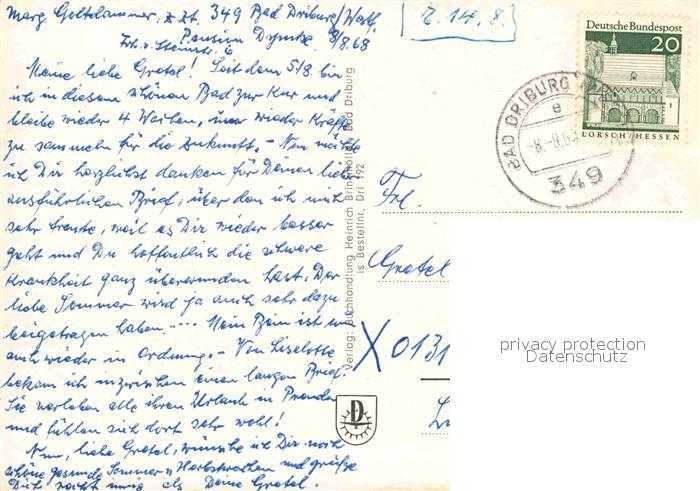 Marg Goldammer, z. Zt. 349 Bad Driburg/Westf.
Pension Dymke 8/8.68
Frh. v. Steinstr. 6
[Z. 14. 8.]
Meine liebe Gretel! Seit dem 5/8 bin
ich in diesem schönen Bad zur Kur und
bleibe wieder 4 Wochen, um wieder Kräfte
zu sammeln für die Zukunft. - Nun möchte
ich Dir herzlichst danken für Deinen lieben
ausführlichen Brief, über den ich mich
sehr freute, weil es Dir wieder besser
geht und Du hoffentlich die schwere
Krankheit ganz überwunden hast. Der
liebe Sommer wird ja auch sehr dazu
beigetragen haben. --- Mein Bein ist nun
auch wieder in Ordnung. - Von Liselotte
bekam ich inzwischen einen langen Brief.
Sie verleben alle ihren Urlaub in
und fühlen sich dort sehr wohl!
Nun, liebe Gretel, wünsche ich Dir noch
schöne gesunde Sommer u. Herbstwochen und grüße
Dich recht innig als Deine Gretel.
Verlag: Buchhandlung Heinrich Brinkmöller, Bad Driburg
is Bestellnr. Dri 192
Deutsche Bundespost
20
LORSCH/HESSEN
BAD DRIBURG
e
-8.-8.68
349
Frl.
Gretel
X 0131
privacy protection
Datenschutz